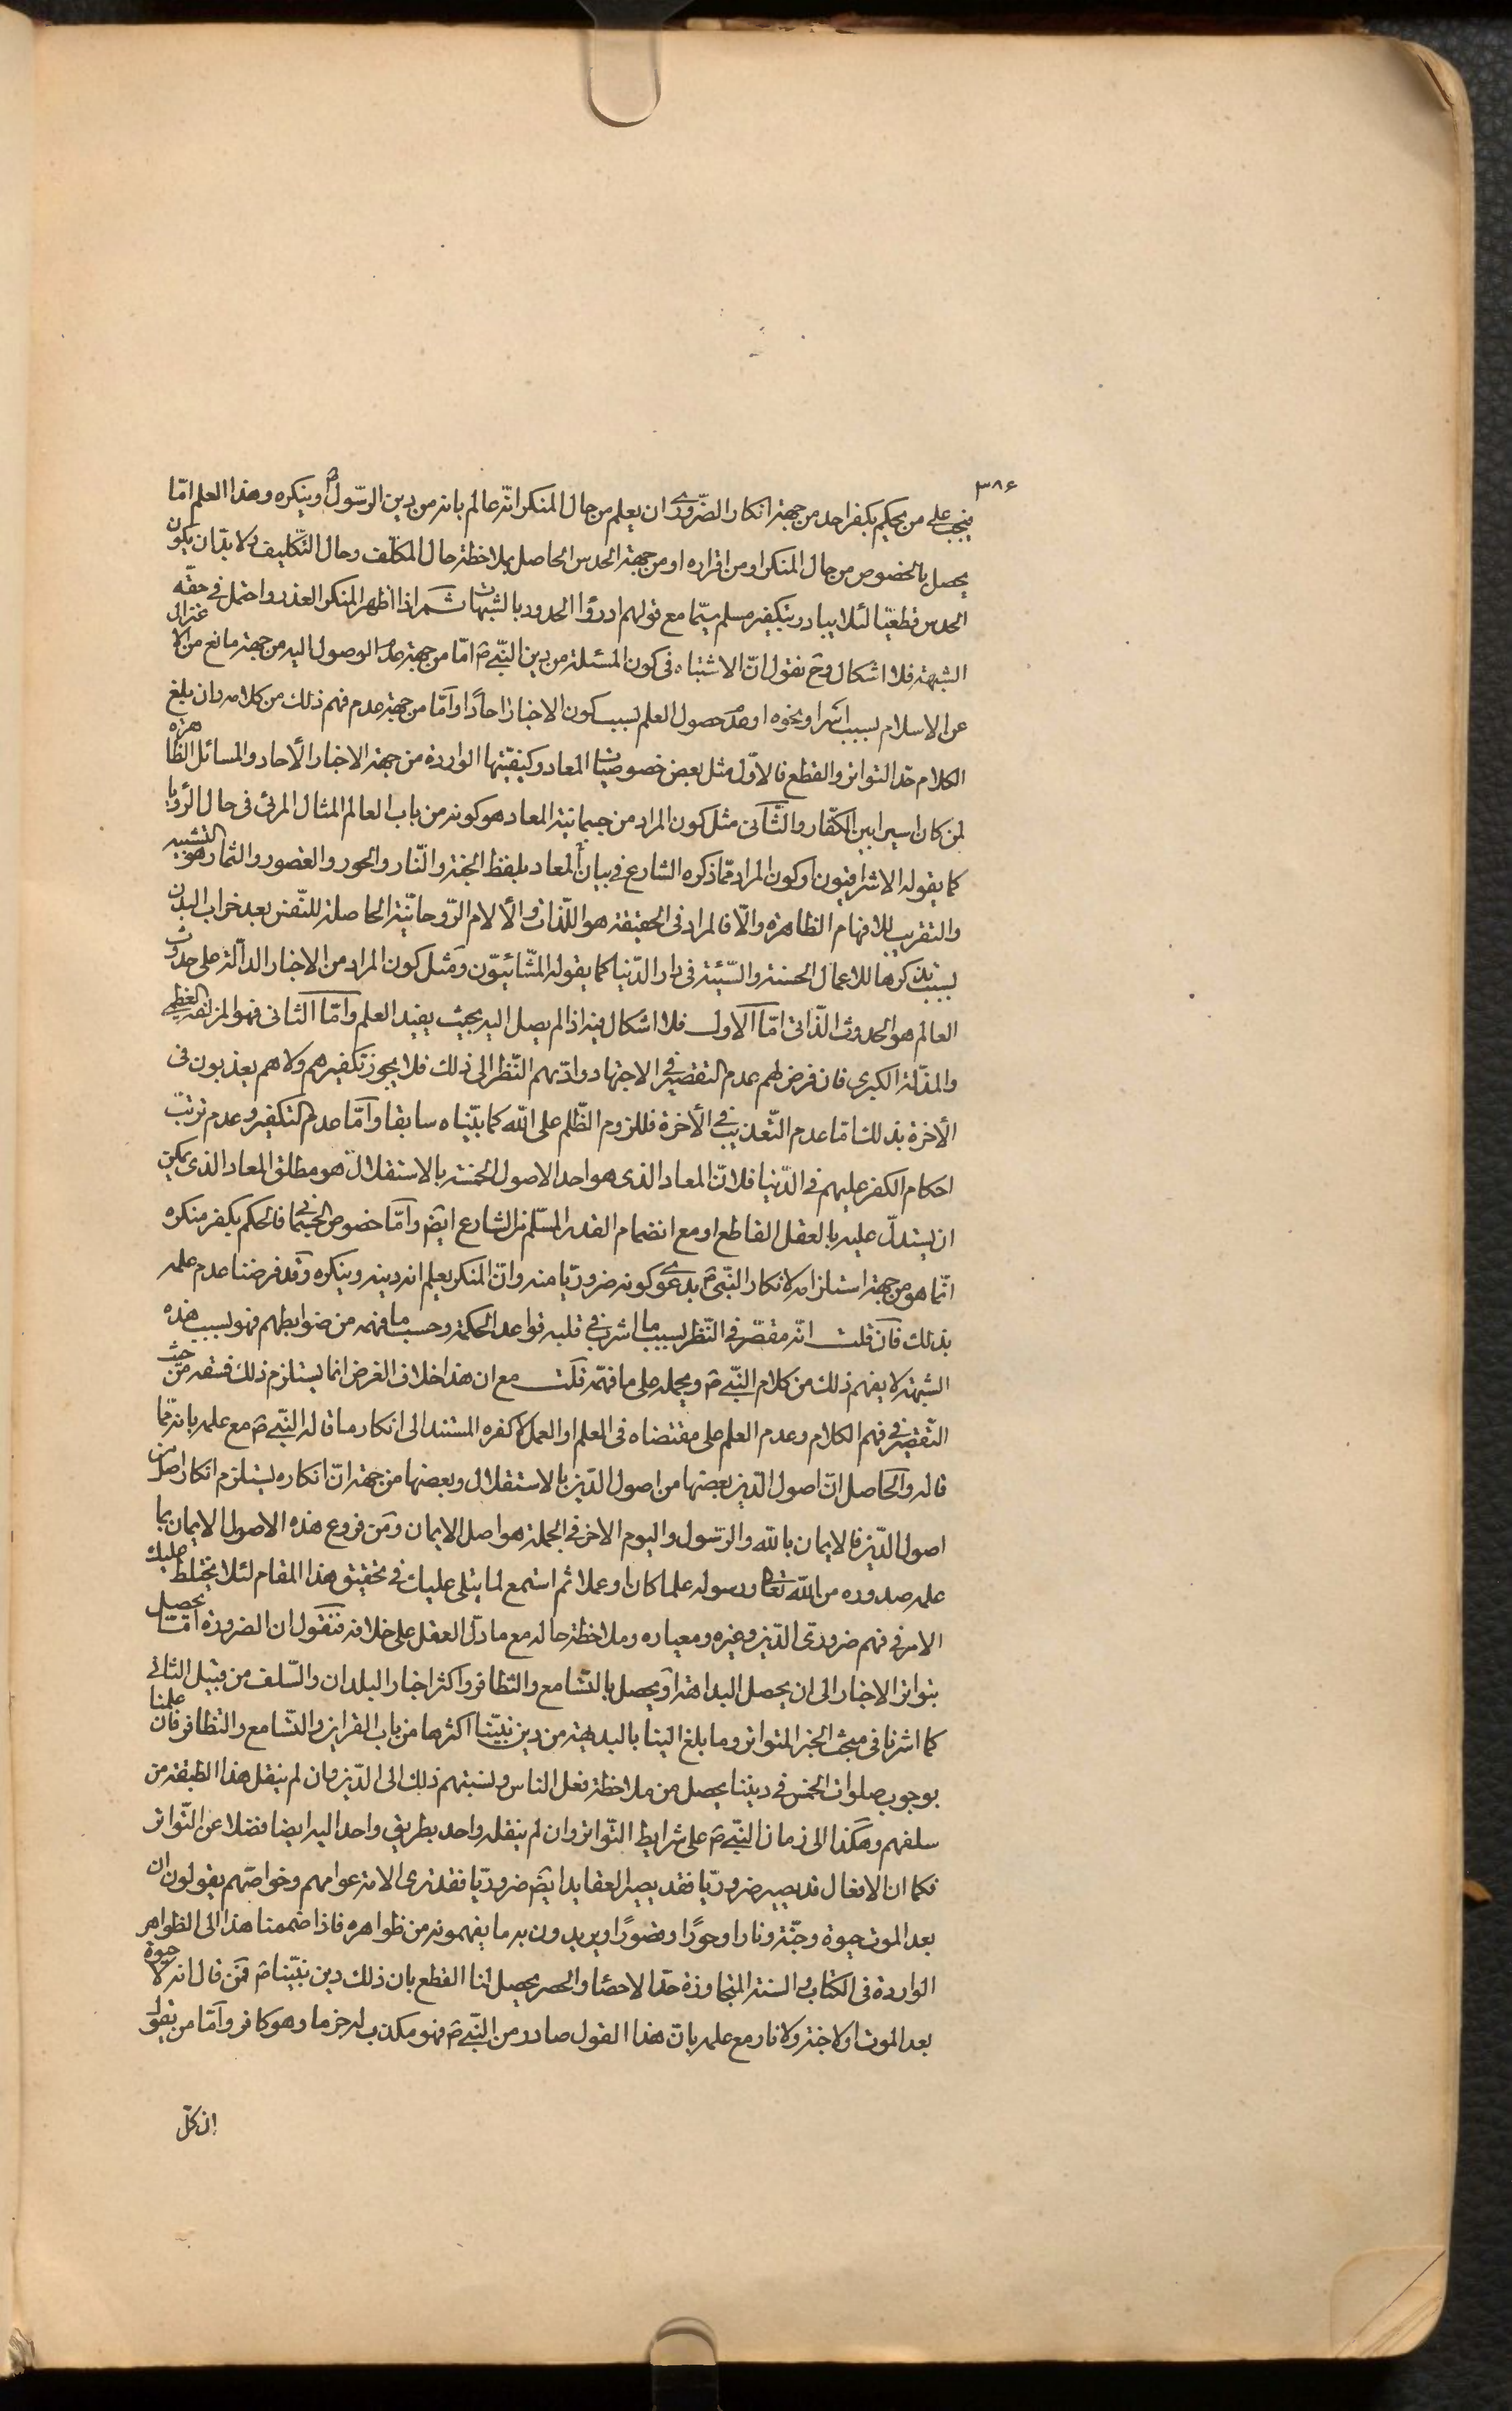 ٣٨٤
فيجب على من يحكم بكفر احد من جهة انكار الضّرورى ان يعلم من حال المنكر انّه عالم بانه من دين الرّسولص وينكره وهذا العلم امّا
يحصل بالخصوص من حال المنكر او من اقراره او من جهة الحدس الحاصل بملاحظة حال المكلّف وحال التّكليف ولا بدّ ان يكون
الحدس قطعيّا لئلا يبادر بتكفير مسلم سيّما مع قولهم ادرؤا الحدود بالشبهات ثم اذا اظهر المنكر العذر واحتمل فى حقّه
الشبهة فلا اشكال وح نقول انّ الاشتباه فى كون المسئلة من دين النّبى ص امّا من جهة عدم الوصول اليه من جهة مانع من الاغتراب
عن الاسلام بسبب اسر او نحوه او عدم حصول العلم بسبب كون الاخبار احادًا وامّا من جهة عدم فهم ذلك من كلامه وان بلغ
الكلام حدّ التواتر والقطع فالاوّل مثل بعض خصوصيات المعاد وكيفيّتها الواردة من جهة الاخبار الأحاد والمسائل الظاهرة
لمن كان اسيرا بين الكفّار والثّانى مثل كون المراد من جسمانية المعاد هو كونه من باب العالم المثال المرئى فى حال الرّؤيا
كما يقوله الاشراقيون او كون المراد ممّا ذكره الشارع فى بيان المعاد بلفظ الجنة والنّار والحور والقصور والثمار هو التشبيه
والتقريب للافهام الظاهرة والّا فالمراد فى الحقيقة هو اللّذات والألام الرّوحانيّة الحاصلة للنّفس بعد خراب البدن
بسبب تذكرها للاعمال الحسنة والسّيئة فى دار الدّنيا كما يقوله المشّائيّون ومثل كون المراد من الاخبار الدالّة على حدوث
العالم هو الحدوث الذّاتى امّا الاول فلا اشكال فيه اذا لم يصل اليه بحيث يفيد العلم وامّا الثانى فهو المزلقة العظمى
والمذلّة الكبرى فان فرض لهم عدم التقصير فى الاجتهاد وادّيهم النّظر الى ذلك فلا يجوز تكفيرهم ولا هم يعذبون فى
الأخرة بذلك امّا عدم التّعذيب فى الأخرة فللزوم الظّلم على الله كما بيّناه سابقا وامّا عدم التكفير وعدم ترتّب
احكام الكفر عليهم فى الدّنيا فلانّ المعاد الذى هو احد الاصول الخمسة بالاستقلال هو مطلق المعاد الذى يمكن
ان يستدلّ عليه بالعقل القاطع او مع انضمام القدر المسلّم من الشارع ايضا وامّا خصوص الجسمانى فالحكم بكفر منكره
انّما هو من جهة استلزامه لانكار النّبى ص بدعوى كونه ضروريّا منه وانّ المنكر يعلم انه دينه وينكره وقد فرضنا عدم علمه
بذلك فان قلت انّه مقصّر فى النّظر بسبب ما اشرب فى قلبه قواعد الحكمة وحسب ما فهمه من ضوابطهم فهو بسبب هذه
الشبهة لا يفهم ذلك من كلام النّبى ص ويحمله على ما فهمه قلت مع ان هذا خلاف الفرض انما يستلزم ذلك فسقه من حيث
التّقصير فى فهم الكلام وعدم العلم على مقتضاه فى العلم او العمل لا كفره المستند الى انكار ما قاله النّبى ص مع علمه بانه ممّا
قاله والحاصل انّ اصول الدّين بعضها من اصول الدّين بالاستقلال وبعضها من جهة انّ انكاره يستلزم انكار اصل من
اصول الدّين فالايمان بالله والرّسول واليوم الاخر فى الجملة هو اصل الايمان ومن فروع هذه الاصول الايمان بما
علم صدوره من الله تعالى ورسوله علما كان او عملا ثم استمع لما يتلى عليك فى تحقيق هذا المقام لئلا يختلط عليك
الامر فى فهم ضرورى الدّين وغيره ومعياره وملاحظة حاله مع ما دلّ العقل على خلافه فنقول ان الضرورة امّا يحصل
بتواتر الاخبار الى ان يحصل البداهة او يحصل بالتّسامع والتظافر واكثر اخبار البلدان والسّلف من قبيل الثانى
كما اشرنا فى مبحث الخبر المتواتر وما بلغ الينا بالبديهة من دين نبيّنا اكثرها من باب القراين والتّسامع والتظافر فان علمنا
بوجوب صلوات الخمس فى ديننا يحصل من ملاحظة فعل الناس ونسبتهم ذلك الى الدّين وان لم ينقل هذا الطبقة من
سلفهم وهكذا الى زمان النّبى ص على شرايط التّواتر وان لم ينقله واحد بطريق واحد اليه ايضا فضلا عن التّواتر
فكما ان الافعال قد يصير ضروريّا فقد يصير العقايد ايضا ضروريّا فقد نرى الامة عوامهم وخواصّهم يقولون ان
بعد الموت حيوة وجنّة ونارا وحورًا وقصورًا ويريدون به ما يفهمونه من ظواهره فاذا ضممنا هذا الى الظواهر
الواردة فى الكتاب والسنة المتجاوزة حدّ الاحصاء والحصر يحصل لنا القطع بان ذلك دين نبيّنا ص فمن قال انه لا حيوة
بعد الموت او لا جنة ولا نار مع علمه بانّ هذا القول صادر من النّبى ص فهو مكذب له جزما وهو كافر وامّا من يقول
ان كلّ